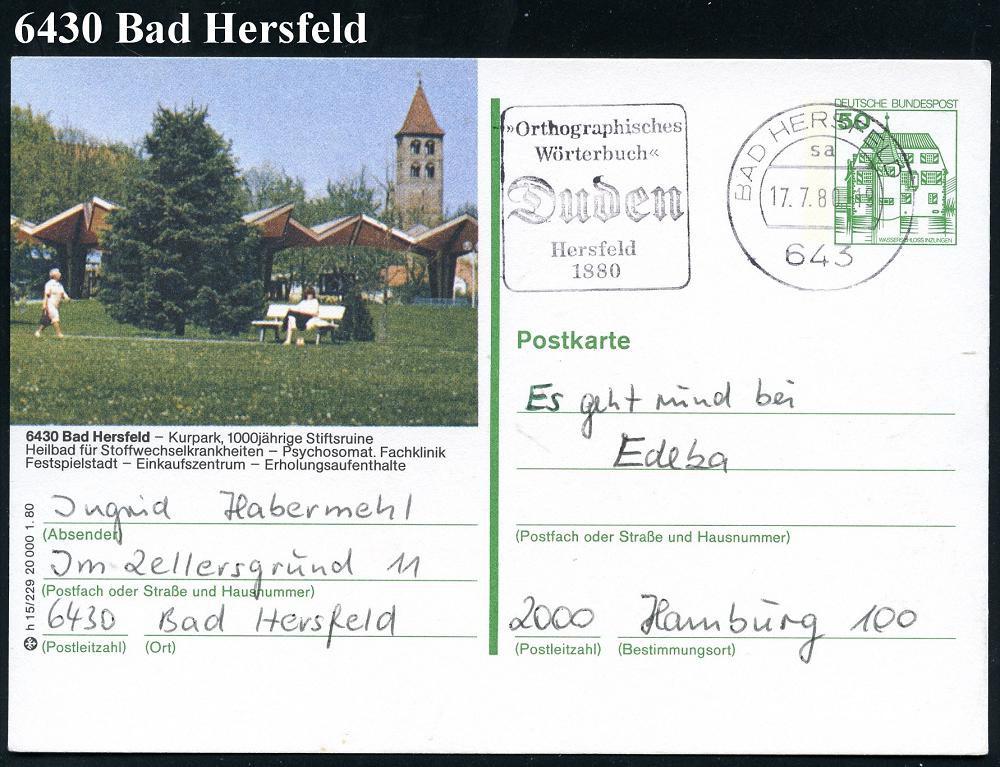 6430 Bad Hersfeld
»Orthographisches
Wörterbuch«
Duden
Hersfeld
1880
BAD HERSFELD
sa
17.7.80
643
DEUTSCHE BUNDESPOST
50
WASSERSCHLOSS INZLINGEN
Postkarte
Es geht rund bei
Edeka
(Postfach oder Straße und Hausnummer)
2000 Hamburg 100
(Postleitzahl) (Bestimmungsort)
6430 Bad Hersfeld – Kurpark, 1000jährige Stiftsruine
Heilbad für Stoffwechselkrankheiten – Psychosomat. Fachklinik
Festspielstadt – Einkaufszentrum – Erholungsaufenthalte
Ingrid Habermehl
(Absender)
Im Zellersgrund 11
(Postfach oder Straße und Hausnummer)
6430 Bad Hersfeld
(Postleitzahl) (Ort)
h 15/229 20 000 1.80